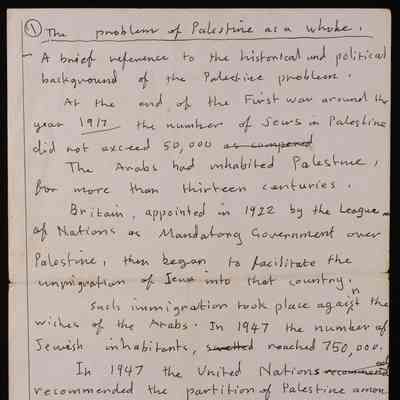 ① The problem of Palestine as a whole.
- A brief reference to the historical and political
background of the Palestine problem.
At the end of the First war around the
year 1917 the number of Jews in Palestine
did not exceed 50,000 as compared
The Arabs had inhabited Palestine,
for more than thirteen centuries.
Britain, appointed in 1922 by the League
of Nations as Mandatory Government over
Palestine, then began to facilitate the
immigration of Jews into that country.
Such immigration took place against the
wishes of the Arabs. In 1947 the number of
Jewish inhabitants, reached 750,000.
In 1947 the United Nations
recommended the partition of Palestine